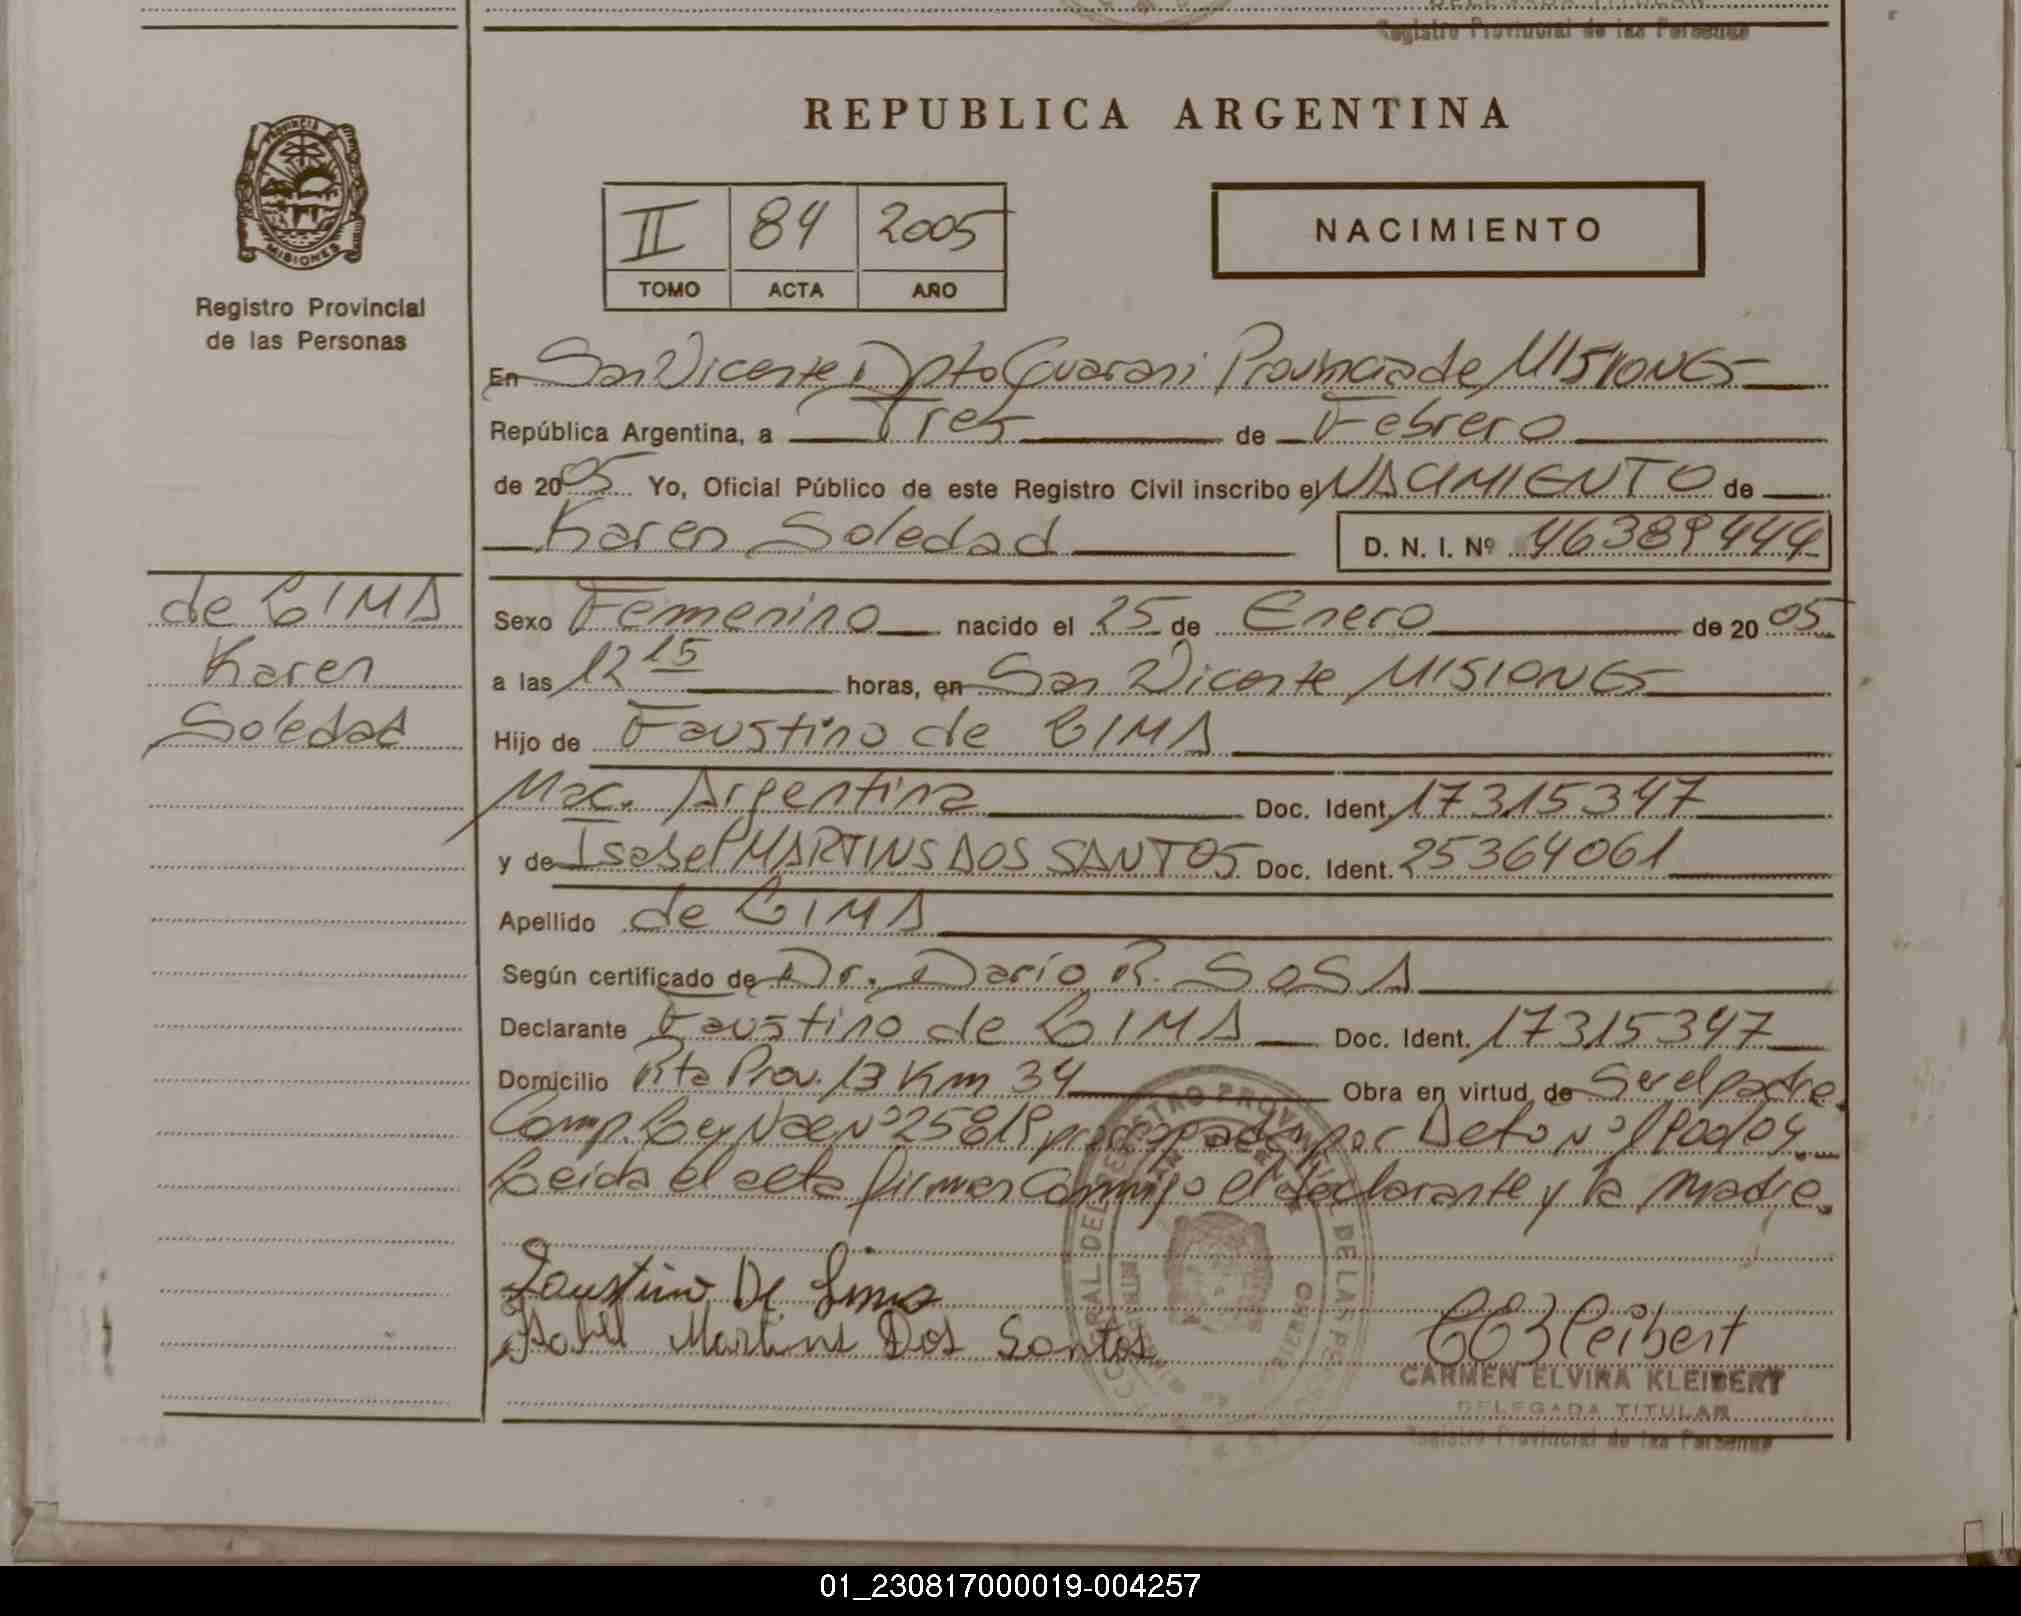 DELEGADA TITULAR
Registro Provincial de las Personas
REPUBLICA ARGENTINA
PROVINCIA DE
MISIONES
Registro Provincial
de las Personas
II 84 2005
TOMO ACTA AÑO
NACIMIENTO
En San Vicente Dpto Guarani Provincia de MISIONES
República Argentina, a Tres de Febrero
de 2005 Yo, Oficial Público de este Registro Civil inscribo el NACIMIENTO de
Karen Soledad D. N. I. Nº 46389444
de LIMA
Karen
Soledad
Sexo Femenino nacido el 25 de Enero de 2005
a las 12 15 horas, en San Vicente MISIONES
Hijo de Faustino de LIMA
Nac. Argentina Doc. Ident. 17315347
y de Isabel MARTINS DOS SANTOS Doc. Ident. 25364061
Apellido de LIMA
Según certificado de Dr. Darío R. SOSA
Declarante Faustino de LIMA Doc. Ident. 17315347
Domicilio Rta Prov. 13 Km 34 Obra en virtud de Ser el padre.
Comp. Ley Nac nº 25819 por Dcto nº
Leida el acta firman Conmigo el declarante y la madre.
Faustino De Lima
Isabel Martins Dos Santos
CEKleibert
CARMEN ELVIRA KLEIBERT
DELEGADA TITULAR
Registro Provincial de las Personas
01_230817000019-004257